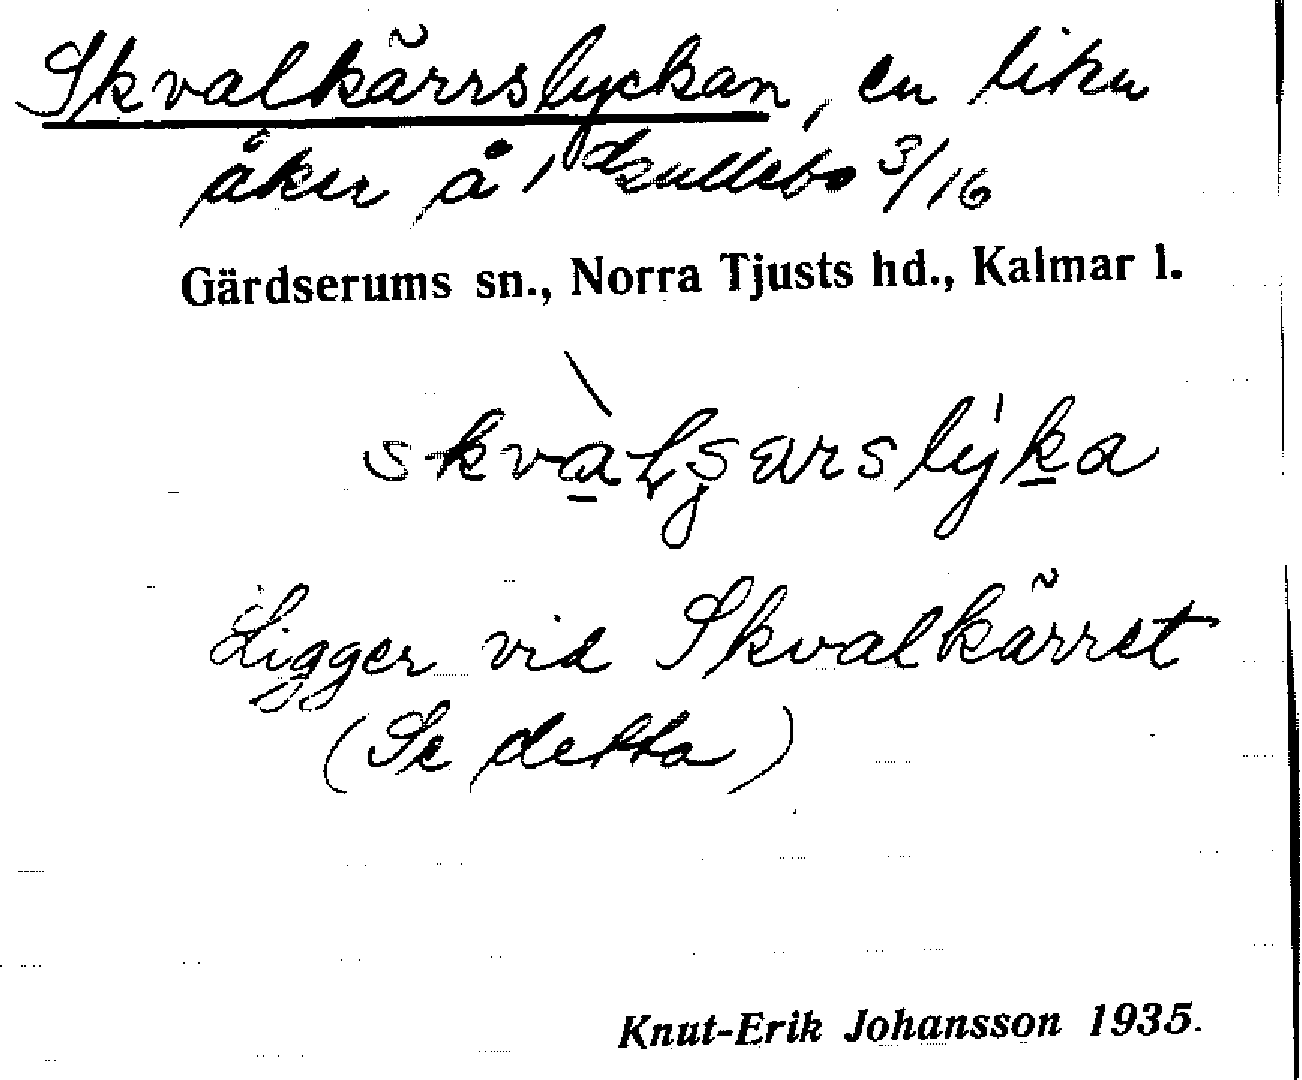 Skvalkärrslyckan, en liten
åker å 3/16
Gärdserums sn., Norra Tjusts hd., Kalmar l.
Ligger vid Skvalkärret
(Se detta)
Knut-Erik Johansson 1935.